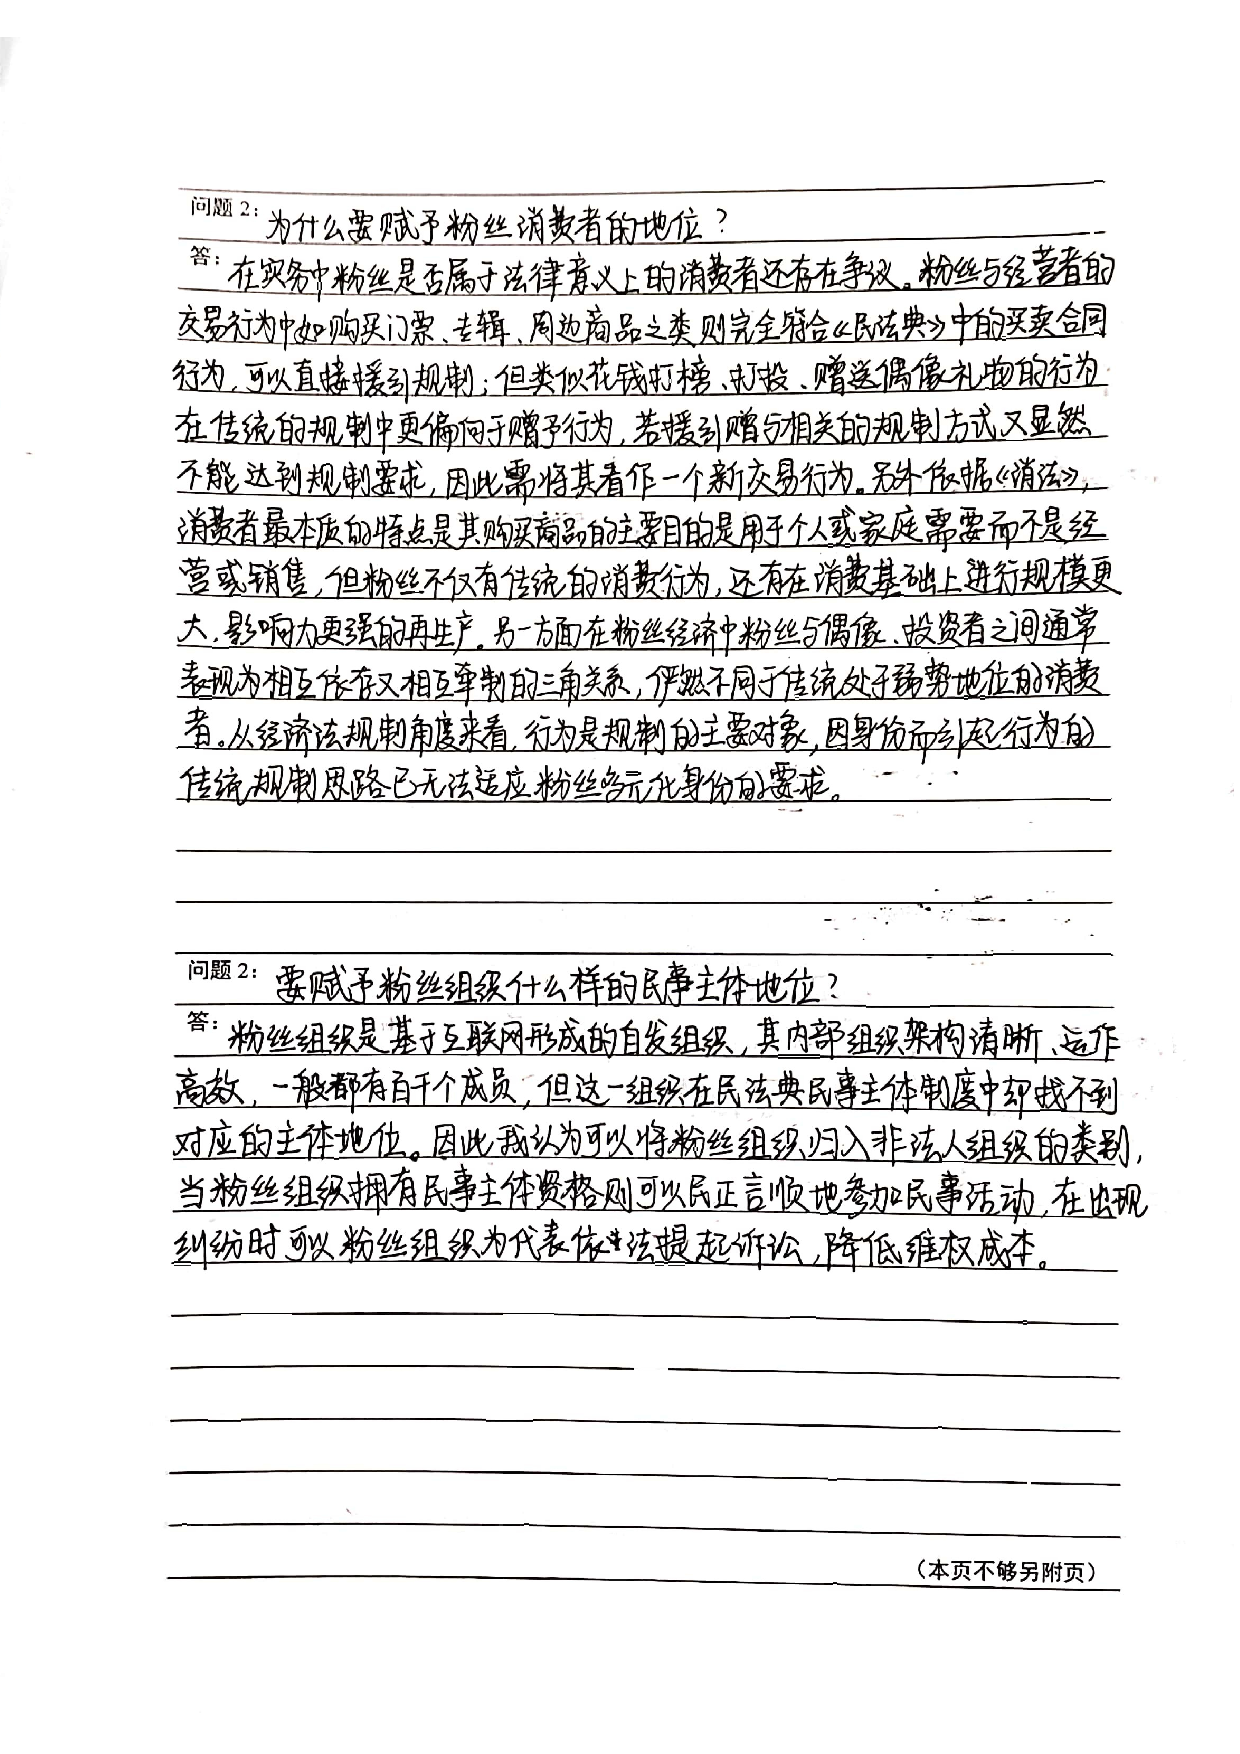 问题 2: 为什么要赋予粉丝消费者的地位？
答: 在实务中粉丝是否属于法律意义上的消费者还存在争议。粉丝与经营者的
交易行为中如购买门票、专辑、周边商品之类则完全符合《民法典》中的买卖合同
行为，可以直接援引规制；但类似花钱打榜、打投、赠送偶像礼物的行为
在传统的规制中更偏向于赠予行为，若援引赠与相关的规制方式又显然
不能达到规制要求，因此需将其看作一个新交易行为。另外依据《消法》，
消费者最本质的特点是其购买商品的主要目的是用于个人或家庭需要而不是经
营或销售，但粉丝不仅有传统的消费行为，还有在消费基础上进行规模更
大、影响力更强的再生产。另一方面在粉丝经济中粉丝与偶像、投资者之间通常
表现为相互依存又相互牵制的三角关系，俨然不同于传统处于弱势地位的消费
者。从经济法规制角度来看，行为是规制的主要对象，因身份而引起行为的
传统规制思路已无法适应粉丝多元化身份的要求。
问题 2: 要赋予粉丝组织什么样的民事主体地位？
答: 粉丝组织是基于互联网形成的自发组织，其内部组织架构清晰、运作
高效，一般都有百千个成员，但这一组织在民法典民事主体制度中却找不到
对应的主体地位。因此我认为可以将粉丝组织归入非法人组织的类别，
当粉丝组织拥有民事主体资格则可以民正言顺地参加民事活动，在出现
纠纷时可以粉丝组织为代表依法提起诉讼，降低维权成本。
（本页不够另附页）